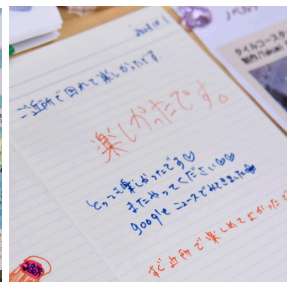 ご近所で回れて楽しかったです。
楽しかったです。
とっても楽しかったです♡
またやってください♡♡
googleニュースでみてきました
すぐ近所で楽しめてよかったで
ノベル
タイルコースタ